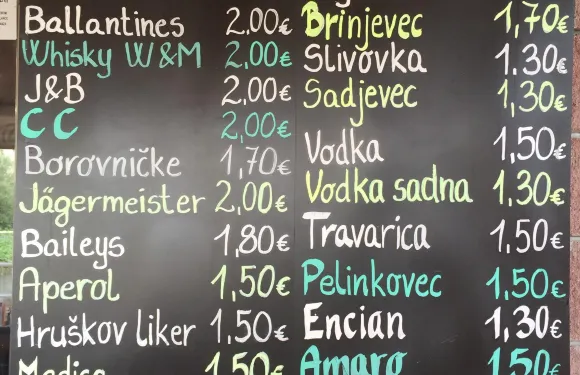 Ballantines 2,00€
Whisky W&M 2,00€
J&B 2,00€
CC 2,00€
Borovničke 1,70€
Jägermeister 2,00€
Baileys 1,80€
Aperol 1,50€
Hruškov liker 1,50€
Medica 1,50€
Brinjevec 1,70€
Slivovka 1.30€
Sadjevec 1,30€
Vodka 1,50€
Vodka sadna 1.30€
Travarica 1,50€
Pelinkovec 1,50€
Encian 1,30€
Amaro 1,50€